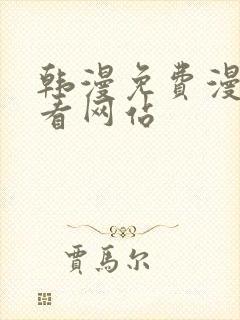 韩漫免费漫
看网站
贾马尔